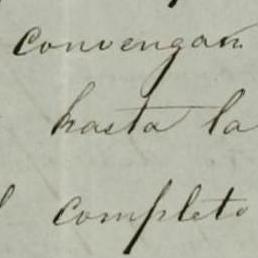 convengan
hasta la
completo